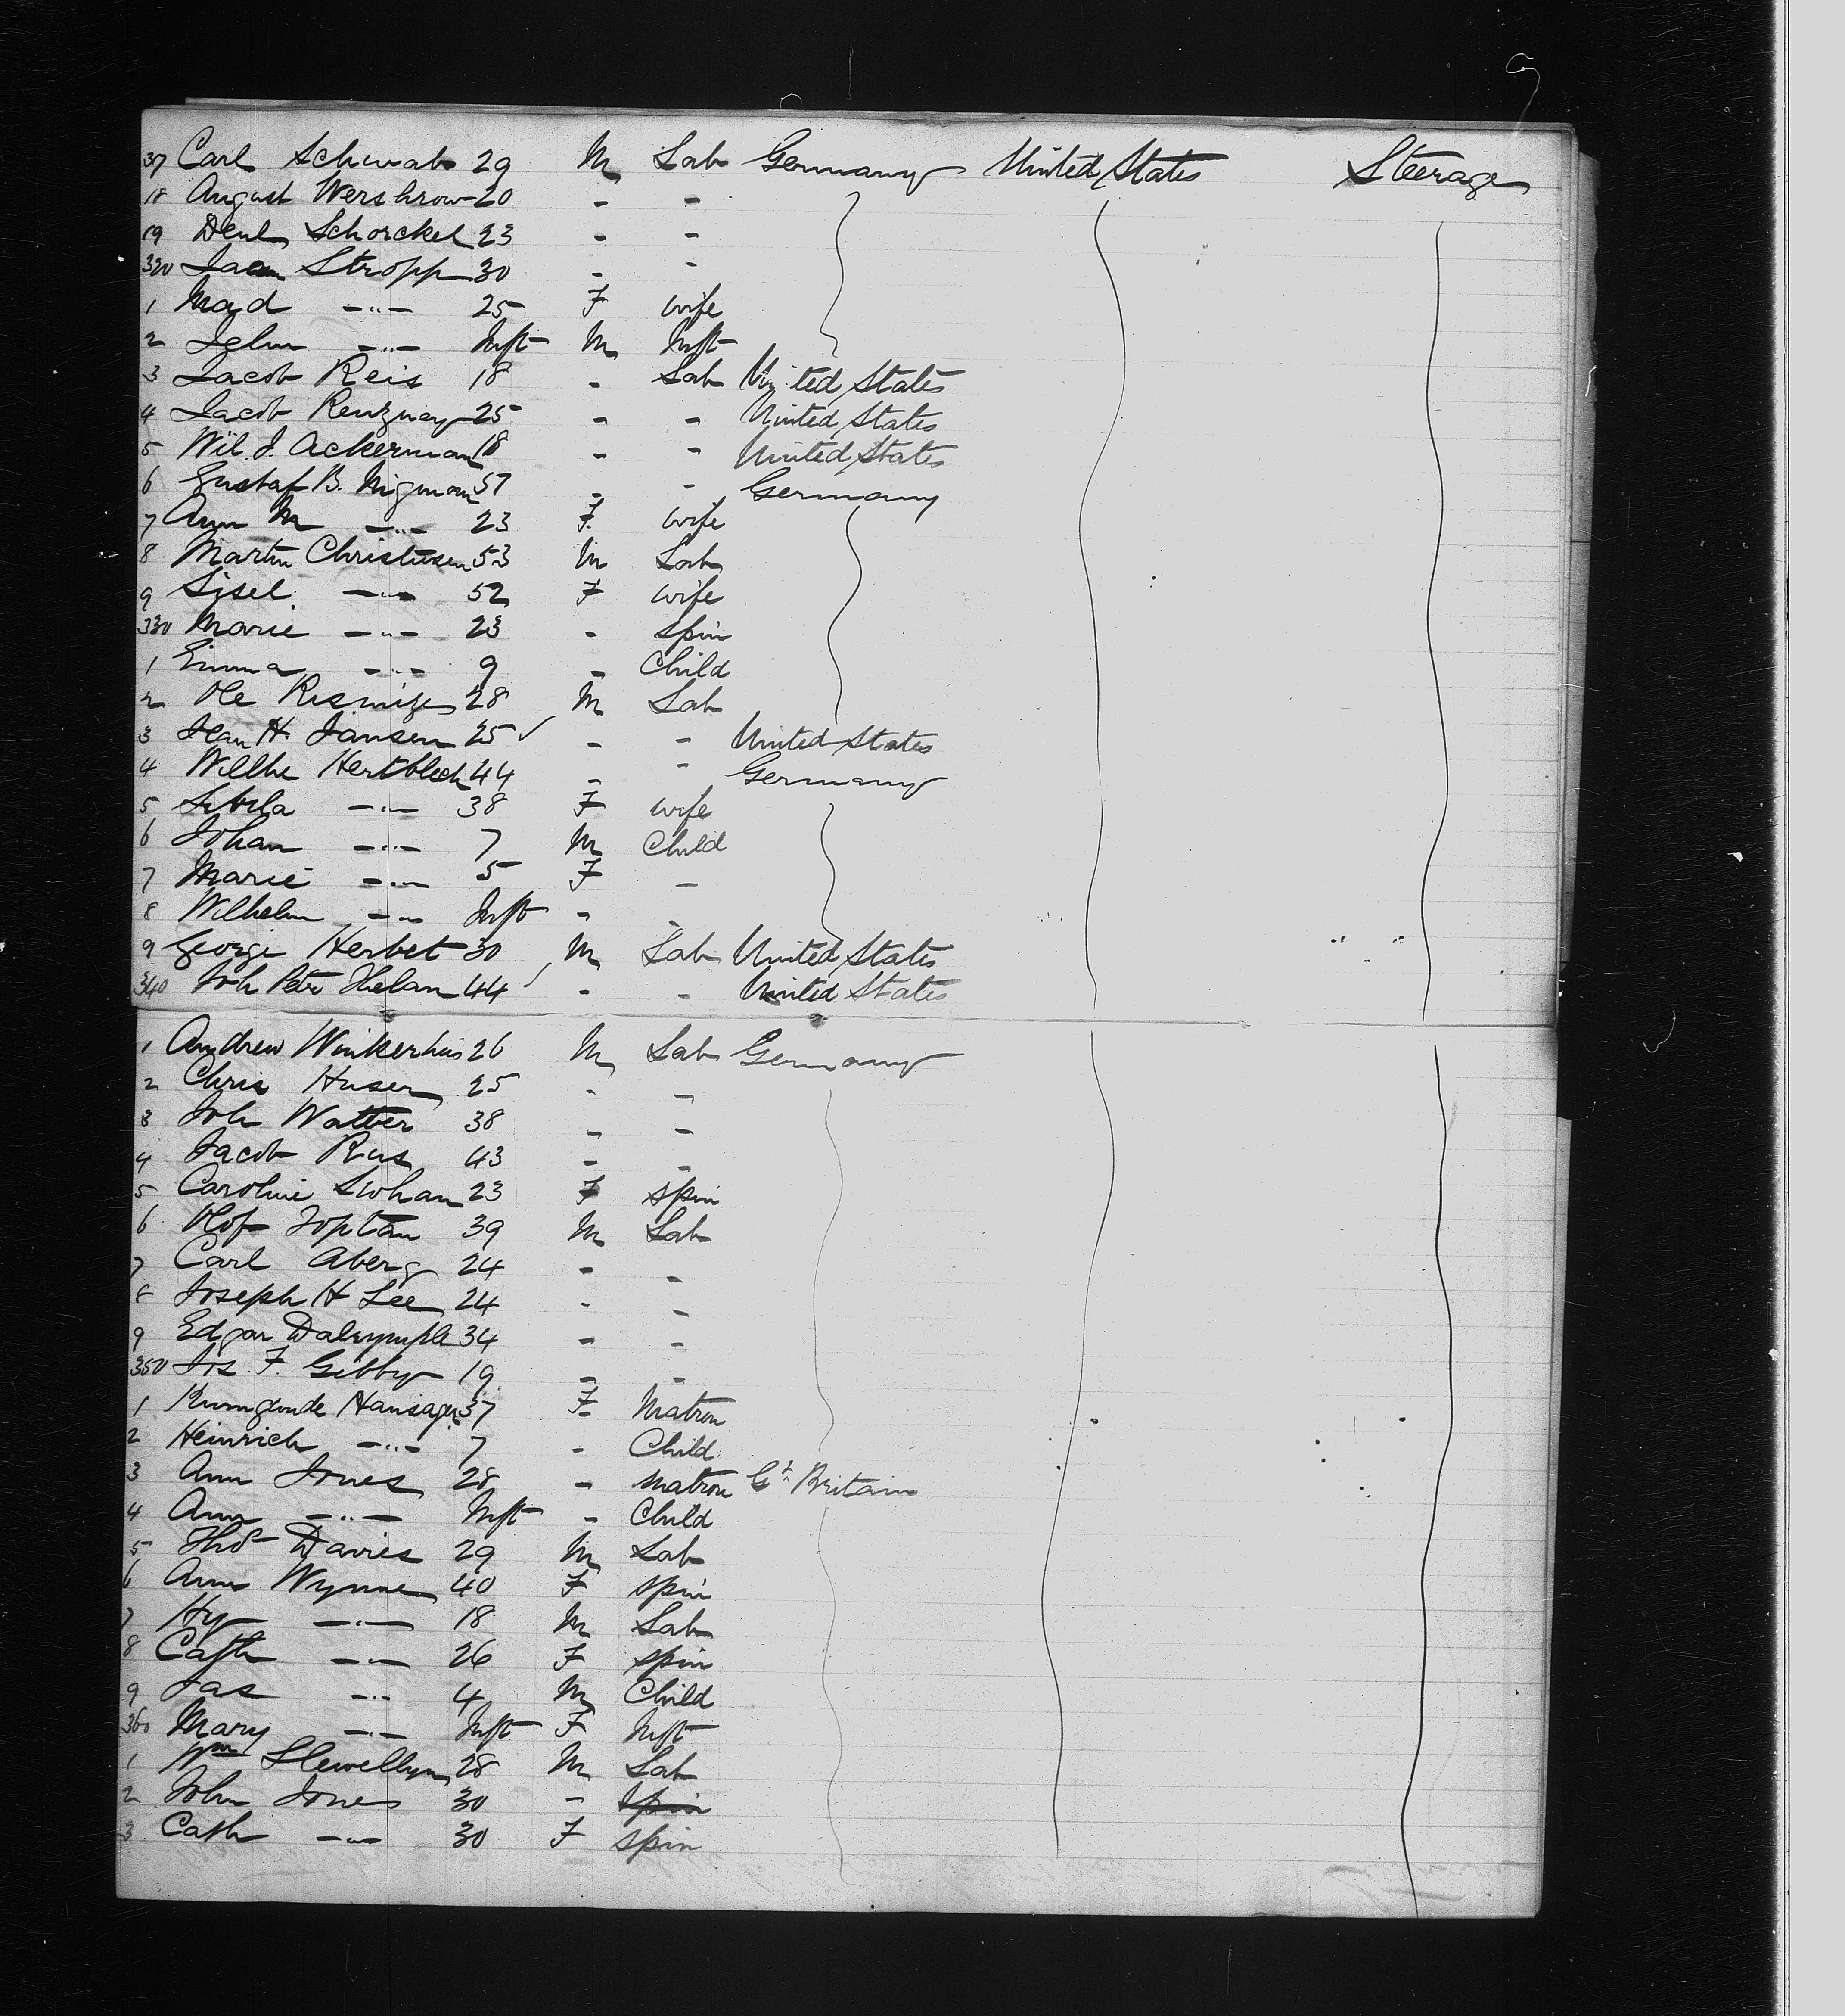 9
37 Carl Schwab 29 M Lab Germany United States Steerage
18 August Wershrow 20 - -
19 Schorckel 23 - -
320 Stropp 30 - -
1 Magd -"- 25 F wife
2 -"- Inft M Inft
3 Jacob Reis 18 - Lab United States
4 Jacob 25 - - United States
5 Wil. J. Ackerman 18 - - United States
6 Gustaf B. 57 - - Germany
7 Ann M -"- 23 F wife
8 Martin Christensen 53 M Lab
9 Sisel -"- 52 F wife
330 Marie -"- 23 - spin
1 Emma -"- 9 - Child
2 Ole 28 M Lab
3 H. Jansen 25 ✓ - - United States
4 Wilhe Hertblech 44 - - Germany
5 Sibila -"- 38 F wife
6 Johan -"- 7 M Child
7 Marie -"- 5 F -
8 Wilhelm -"- Inft - -
9 George Herbet 30 M Lab United States
340 Joh Peter Helan 44 - - United States
1 Andrew Winkerhus 26 M Lab Germany
2 Chris Huser 25 - -
3 Joh Watter 38 - -
4 Jacob 43 - -
5 Caroline 23 F spin
6 Olof 39 M Lab
7 Carl Aberg 24 - -
8 Joseph H Lee 24 - -
9 Edgar Dalrymple 34 - -
350 Jos. F. Gibby 19 - -
1 37 F Matron
2 Heinrich -"- 7 - Child
3 Ann Jones 28 - matron Gt Britain
4 Ann -"- Inft - Child
5 Thos Davies 29 M Lab
6 Ann Wynne 40 F spin
7 Hy -"- 18 M Lab
8 Cath -"- 26 F spin
9 Jas -"- 4 M Child
360 Mary -"- Inft F Inft
1 Wm Llewellyn 28 M Lab
2 John Jones 30 - spin
3 Cath -"- 30 F spin